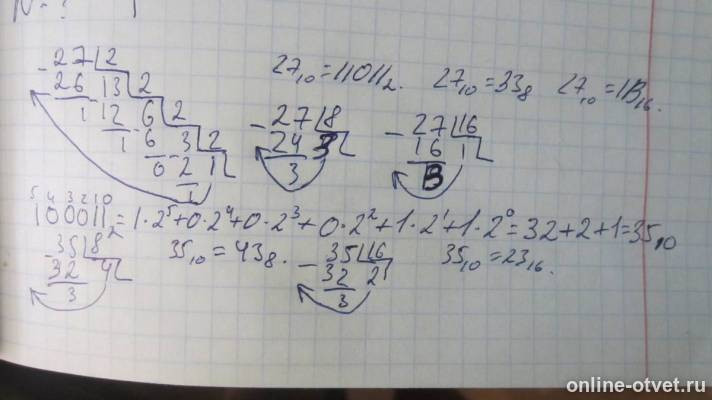 N-?
27 | 2
- 26 13 | 2
1 - 12 6 | 2
1 - 6 3 | 2
0 - 2 1
1
27₁₀=11011₂. 27₁₀=33₈ 27₁₀=1B₁₆.
- 27 | 8
24 3
3
- 27 | 16
16 1
B
5 4 3 2 1 0
100011₂=1·2⁵+0·2⁴+0·2³+0·2²+1·2¹+1·2⁰=32+2+1=35₁₀
- 35 | 8
32 4
3
35₁₀=43₈.
- 35 | 16
32 2
3
35₁₀=23₁₆.
online-otvet.ru